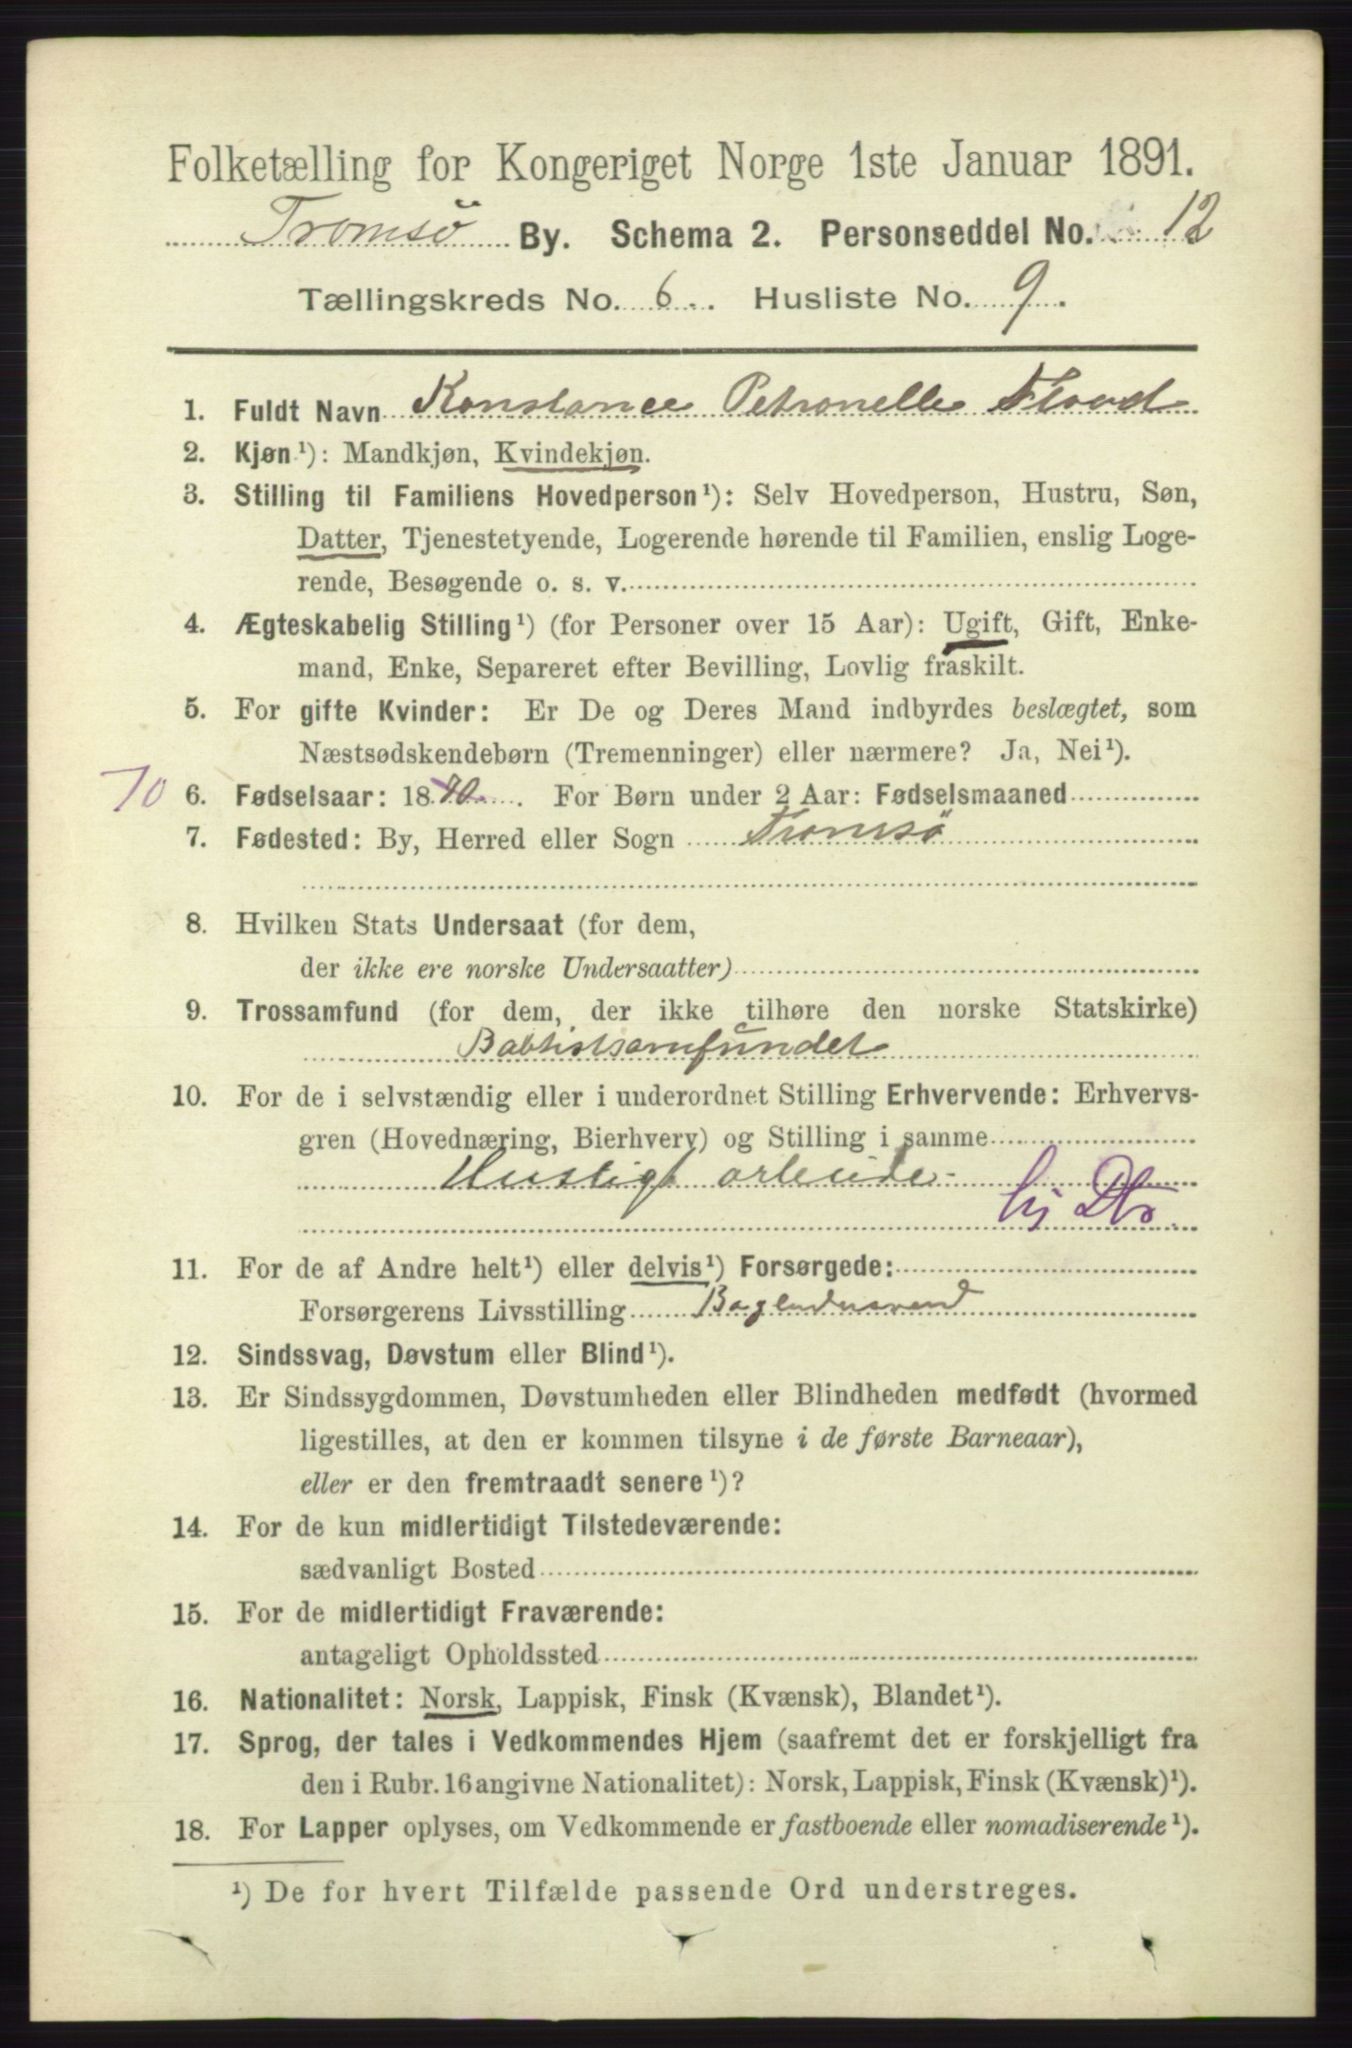 Folketælling for Kongeriget Norge 1ste Januar 1891.
Tromsö By. Schema 2. Personseddel No. 12
Tællingskreds No. 6. Husliste No. 9.
1. Fuldt Navn Konstance Petronelle Flood
2. Kjøn¹): Mandkjøn, Kvindekjøn.
3. Stilling til Familiens Hovedperson¹): Selv Hovedperson, Hustru, Søn,
Datter, Tjenestetyende, Logerende hørende til Familien, enslig Loge-
rende, Besøgende o. s. v.
4. Ægteskabelig Stilling¹) (for Personer over 15 Aar): Ugift, Gift, Enke-
mand, Enke, Separeret efter Bevilling, Lovlig fraskilt.
5. For gifte Kvinder: Er De og Deres Mand indbyrdes beslægtet, som
Næstsødskendebørn (Tremenninger) eller nærmere? Ja, Nei¹).
70 6. Fødselsaar: 1870. For Børn under 2 Aar: Fødselsmaaned
7. Fødested: By, Herred eller Sogn Tromsö
8. Hvilken Stats Undersaat (for dem,
der ikke ere norske Undersaatter)
9. Trossamfund (for dem, der ikke tilhøre den norske Statskirke)
Babtistsamfundet
10. For de i selvstændig eller i underordnet Stilling Erhvervende: Erhvervs-
gren (Hovednæring, Bierhverv) og Stilling i samme
Husligt arbeide
11. For de af Andre helt¹) eller delvis¹) Forsørgede:
Forsørgerens Livsstilling
12. Sindssvag, Døvstum eller Blind¹).
13. Er Sindssygdommen, Døvstumheden eller Blindheden medfødt (hvormed
ligestilles, at den er kommen tilsyne i de første Barneaar),
eller er den fremtraadt senere¹)?
14. For de kun midlertidigt Tilstedeværende:
sædvanligt Bosted
15. For de midlertidigt Fraværende:
antageligt Opholdssted
16. Nationalitet: Norsk, Lappisk, Finsk (Kvænsk), Blandet¹).
17. Sprog, der tales i Vedkommendes Hjem (saafremt det er forskjelligt fra
den i Rubr. 16 angivne Nationalitet): Norsk, Lappisk, Finsk (Kvænsk)¹).
18. For Lapper oplyses, om Vedkommende er fastboende eller nomadiserende¹).
¹) De for hvert Tilfælde passende Ord understreges.